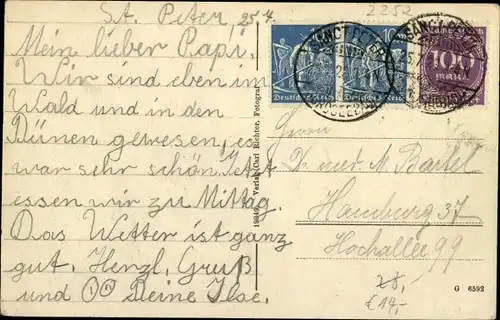 St. Peter, 25.7.
2252
Mein lieber Papi.
Wir sind eben im
Wald und in den
Dünen gewesen, es
war sehr schön. Jetzt
essen wir zu Mittag.
Das Wetter ist ganz
gut. Herzl. Gruß
und Deine Ilse.
Verlag Carl Richter, Fotograf
Deutsches Reich
Deutsches Reich
100
Mark
Herrn
Dr. med. M. Bartel
Hamburg 37
Hochallee 99
28,-
€14,-
G 6592